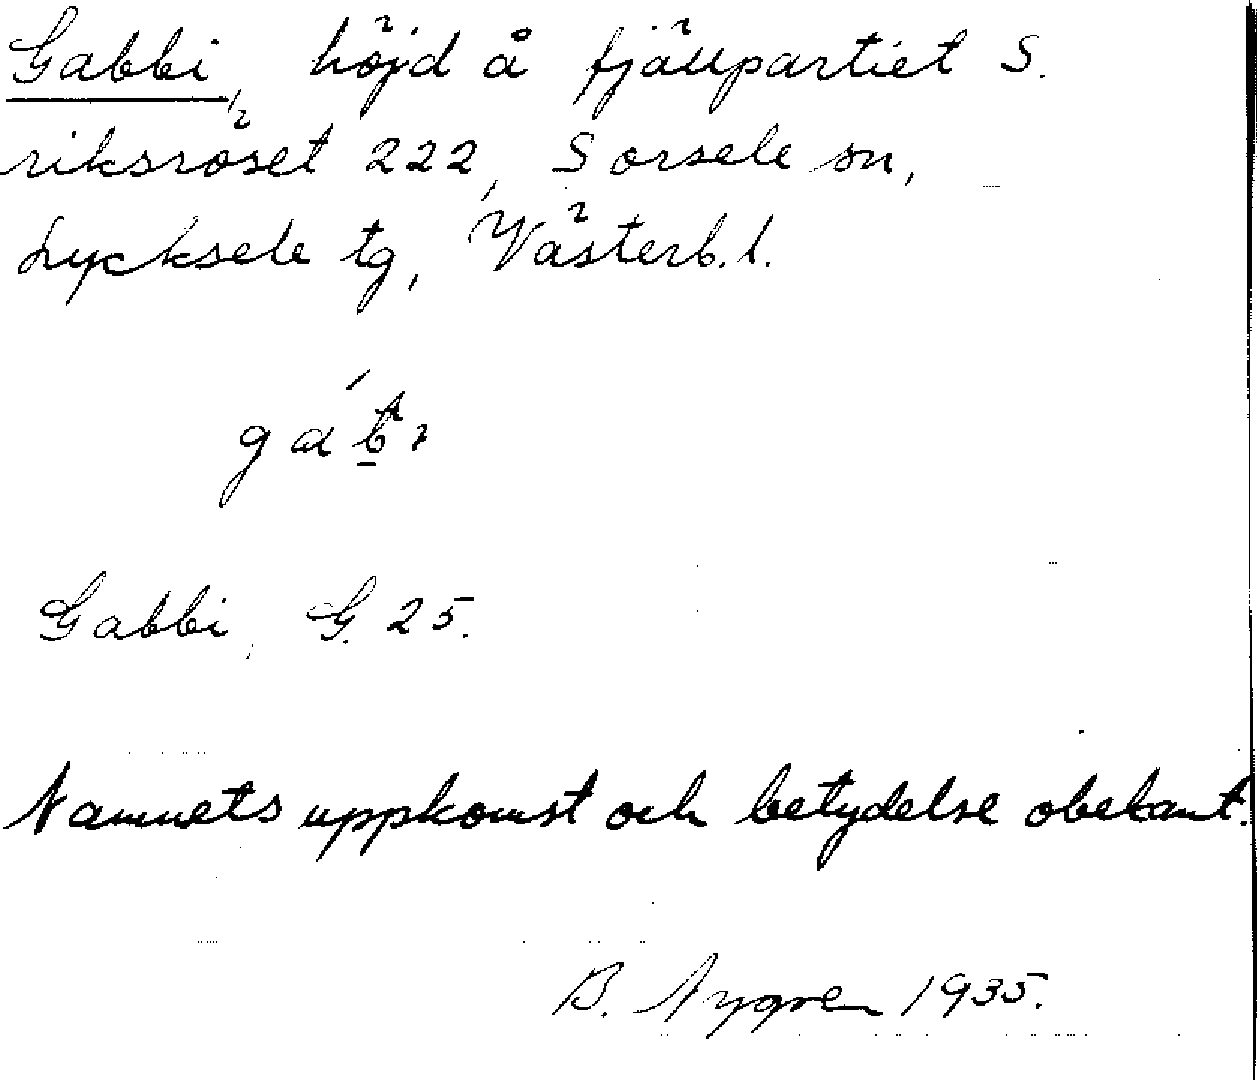 Gabbi, höjd å fjällpartiet S.
riksröset 222, Sorsele sn,
Lycksele tg, Västerb. l.
Gabbi, G. 25.
Namnets uppkomst och betydelse obekant.
B. Nygren 1935.